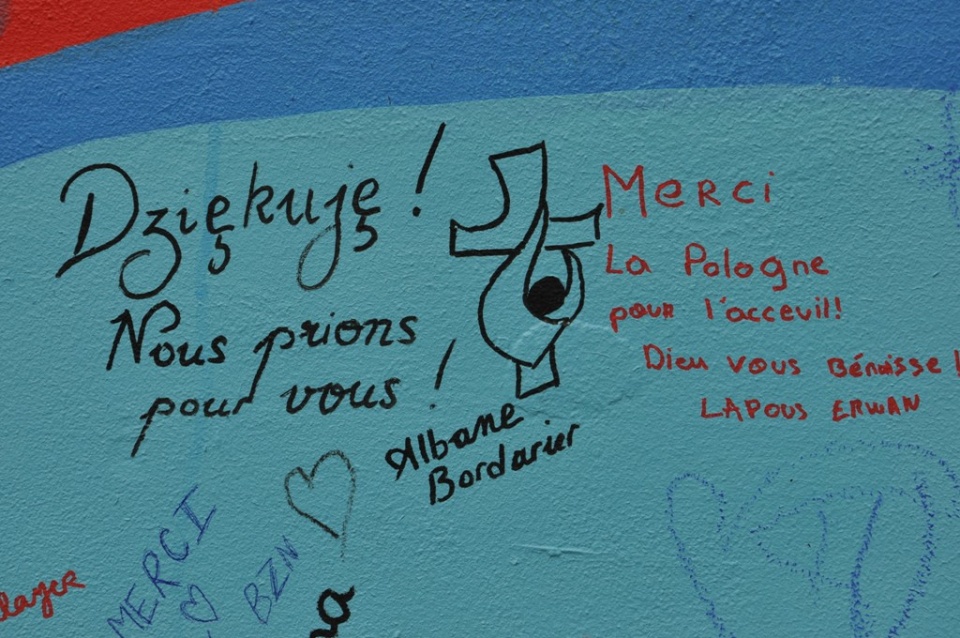 Dziękuję !
Nous prions
pour vous !
Albane
Bordarier
Merci
La Pologne
pour l'acceuil!
Dieu vous Bénisse !
LAPOUS ERWAN
MERCI
BZN